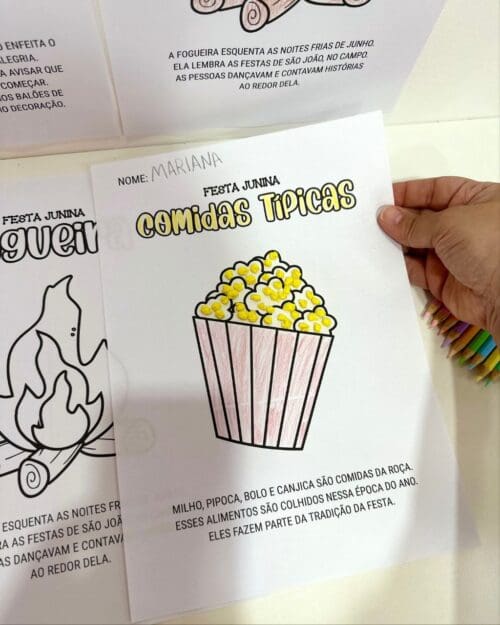 O ENFEITO O
ALEGRIA.
A AVISAR QUE
COMEÇAR.
NOS BALÕES DE
O DECORAÇÃO.
A FOGUEIRA ESQUENTA AS NOITES FRIAS DE JUNHO.
ELA LEMBRA AS FESTAS DE SÃO JOÃO, NO CAMPO.
AS PESSOAS DANÇAVAM E CONTAVAM HISTÓRIAS
AO REDOR DELA.
NOME: MARIANA
FESTA JUNINA
COMIDAS TIPICAS
MILHO, PIPOCA, BOLO E CANJICA SÃO COMIDAS DA ROÇA.
ESSES ALIMENTOS SÃO COLHIDOS NESSA ÉPOCA DO ANO.
ELES FAZEM PARTE DA TRADIÇÃO DA FESTA.
FESTA JUNINA
gueir
ESQUENTA AS NOITES FR
RA AS FESTAS DE SÃO JOÃ
AS DANÇAVAM E CONTAV
AO REDOR DELA.